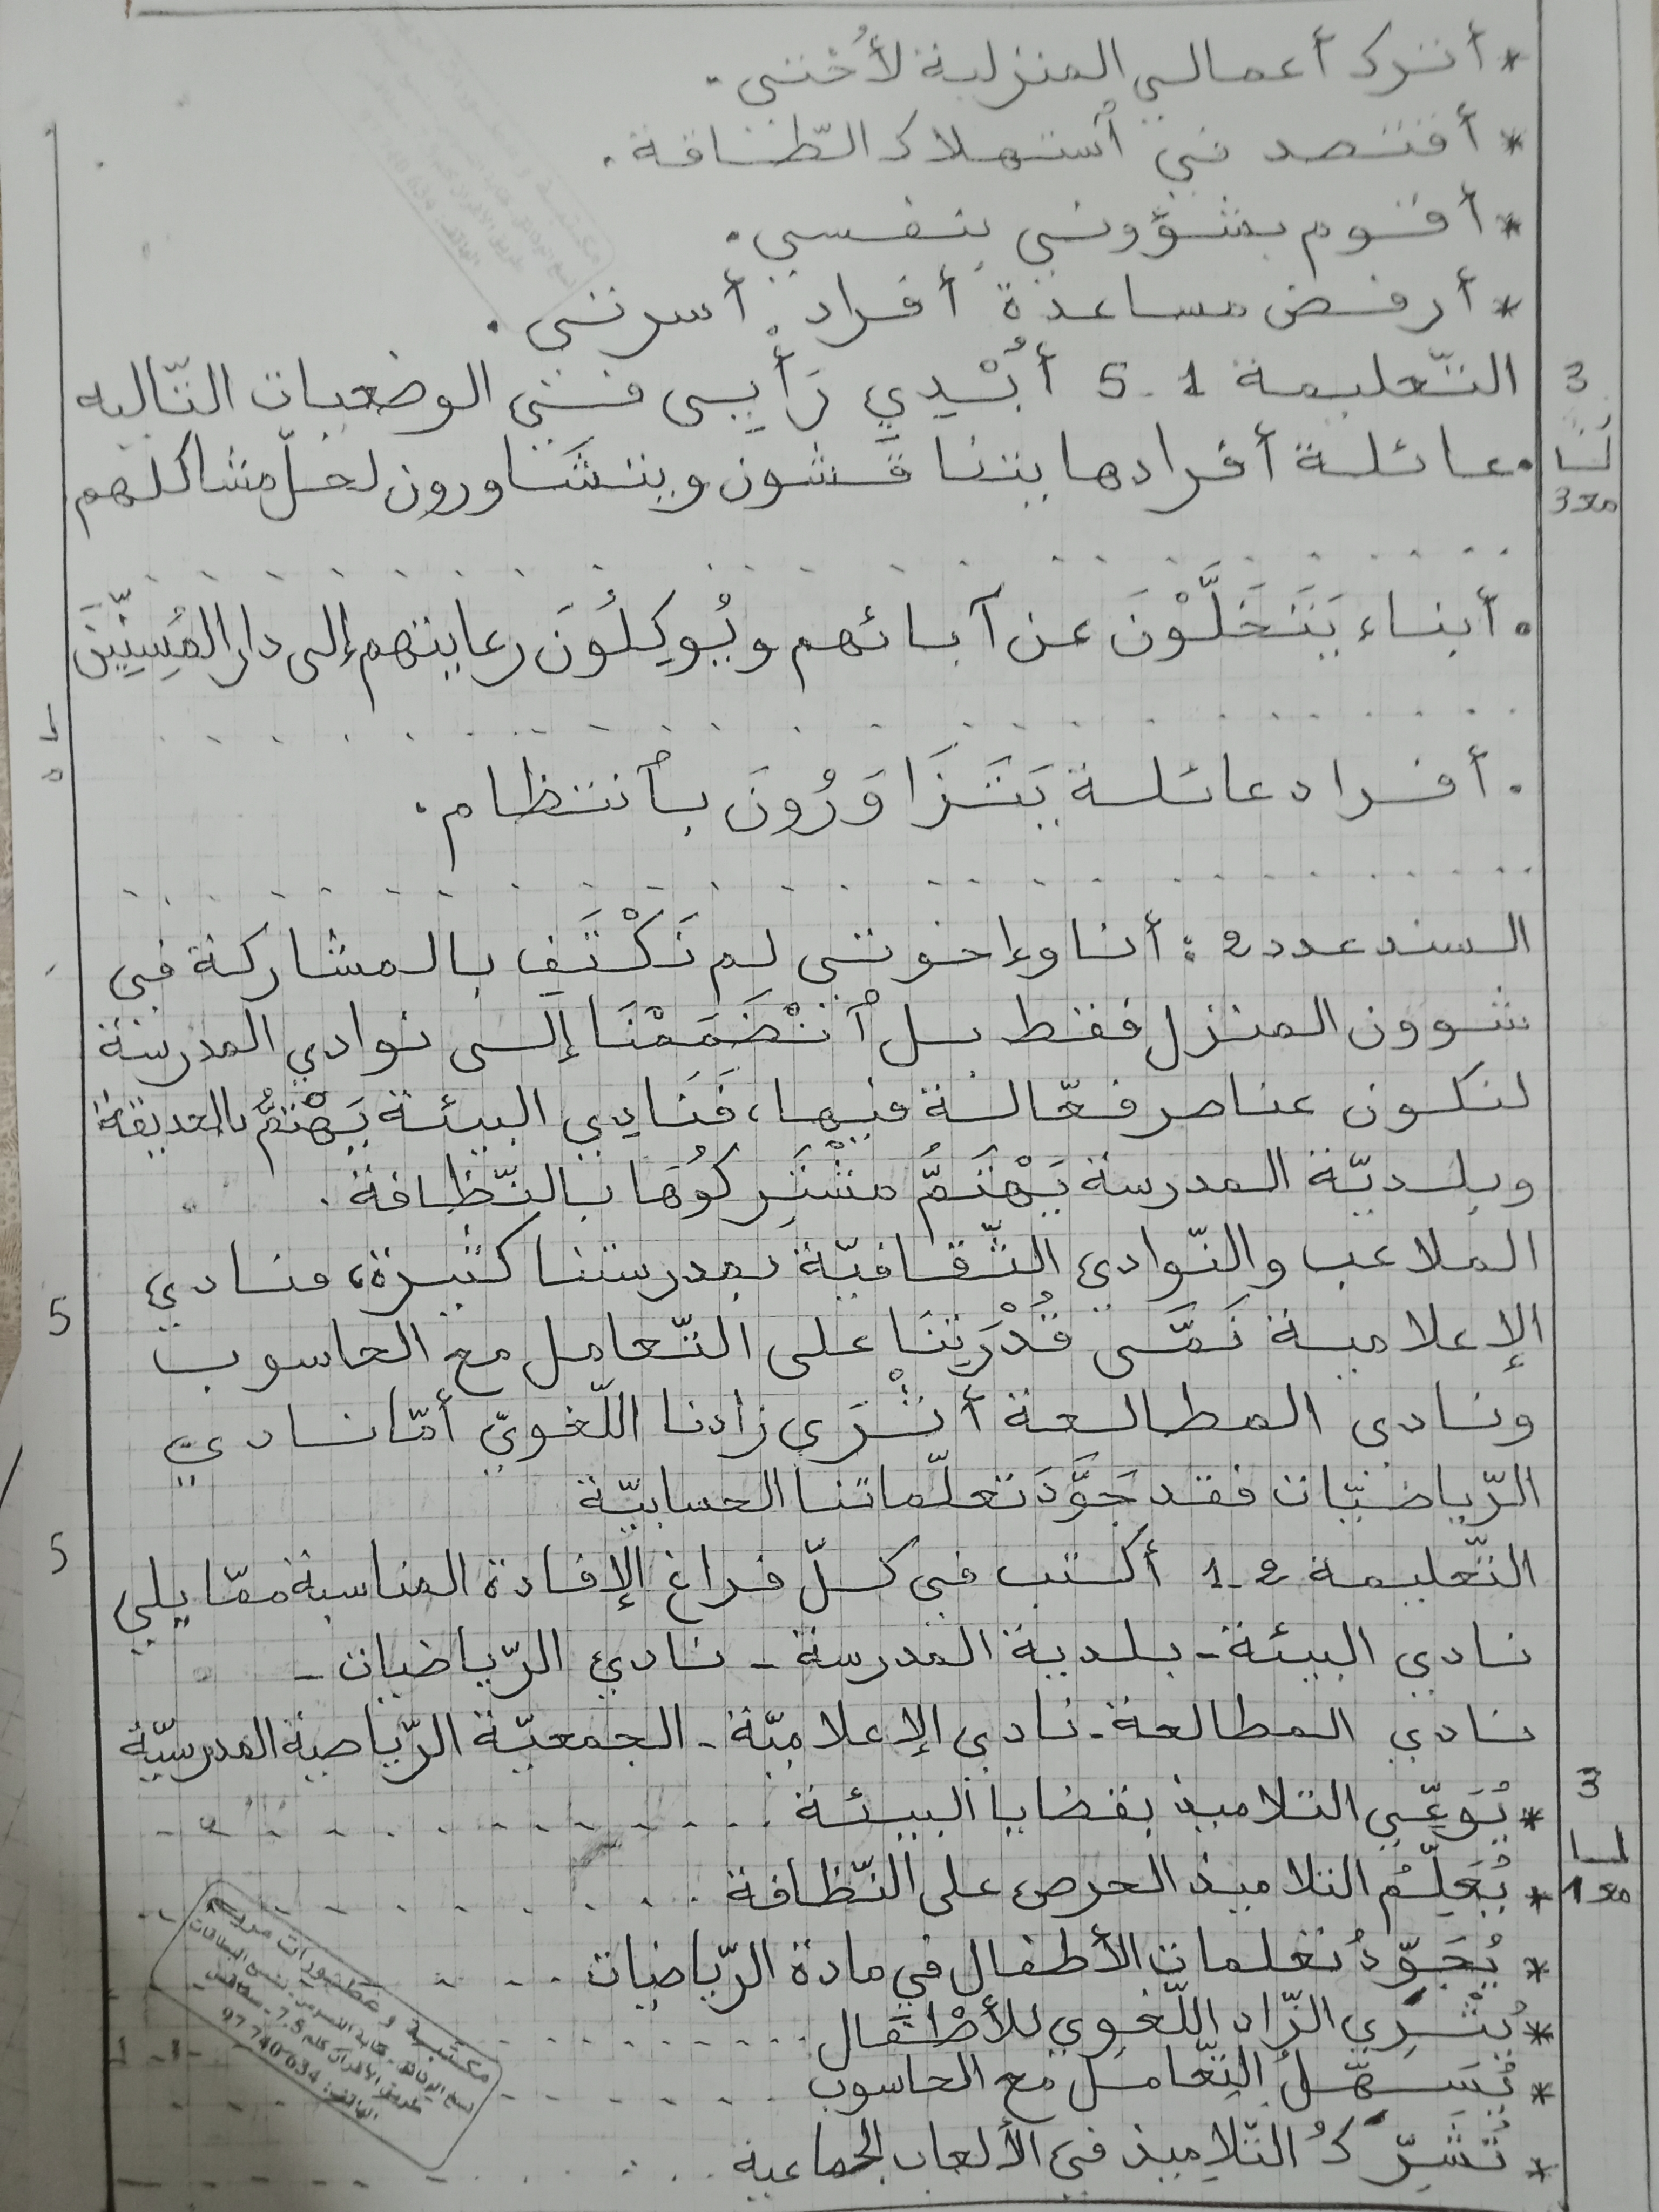 * أترك أعمالي المنزلية لأختي.
* أقتصد في ٱستهلاك الطّاقة.
* أقوم بشؤوني بنفسي.
* أرفض مساعدة أفراد أسرتي.
3 التّعليمة 1-5 أُبْدِي رَأْيِي في الوضعيات التّاليه
• عائلة أفرادها يتناقَشون ويتشَاورون لحلّ مشاكلهم
مع3
• أبناء يَتَخَلَّوْنَ عن آبائهم ويُوكِلُونَ رعايتهم إلى دار المُسِنِّينَ
• أفراد عائلة يَتَزَاوَرُونَ بٱنتظام.
السند عدد 2: أنا وإخوتي لم نَكْتَفِ بالمشاركة في
شوون المنزل فقط بل ٱنْضَمَمْنَا إلى نوادي المدرسة
لنكون عناصر فعّالة فيها، فَنَادِي البيئة يَهْتَمُّ بالحديقة
وبلديّة المدرسة يَهْتَمُّ مُشْتَرِكُوهَا بالنّظافة.
الملاعب والنّوادي الثّقافيّة بمدرستنا كثيرة، فنادي
5
الإعلامية نَمَّى قُدْرَتِنَا على التّعامل مع الحاسوب
ونادي المطالعة أَثْرَى زادنا اللّغويّ أمّا نادي
الرّياضيّات فقد جَوَّدَ تعلّماتنا الحسابيّة
5
التّعليمة 2-1 أكتب في كلّ فراغ الإفادة المناسبة ممّا يلي
نادي البيئة - بلدية المدرسة - نادي الرّياضيات -
نادي المطالعة - نادي الإعلاميّة - الجمعيّة الرّياضية المدرسيّة
3
* يُوَعِّي التلاميذ بقضايا البيئة
* يُعَلِّمُ التلاميذ الحرص على النّظافة
مع1
* يُجَوِّدُ تعلمات الأطفال في مادة الرّياضيات
* يُثْرِي الزّاد اللّغوي للأطْفَال
* يُسَهِّلُ التّعامل مع الحاسوب
* تُشَرِّكُ التّلاميذ في الألعاب الجماعية
مكتبة وعطورات مريم
نسخ الوثائق - كتابة النصوص -
طريق الأفران كلم 7.5 - صفاقس
الهاتف: 97 740 634